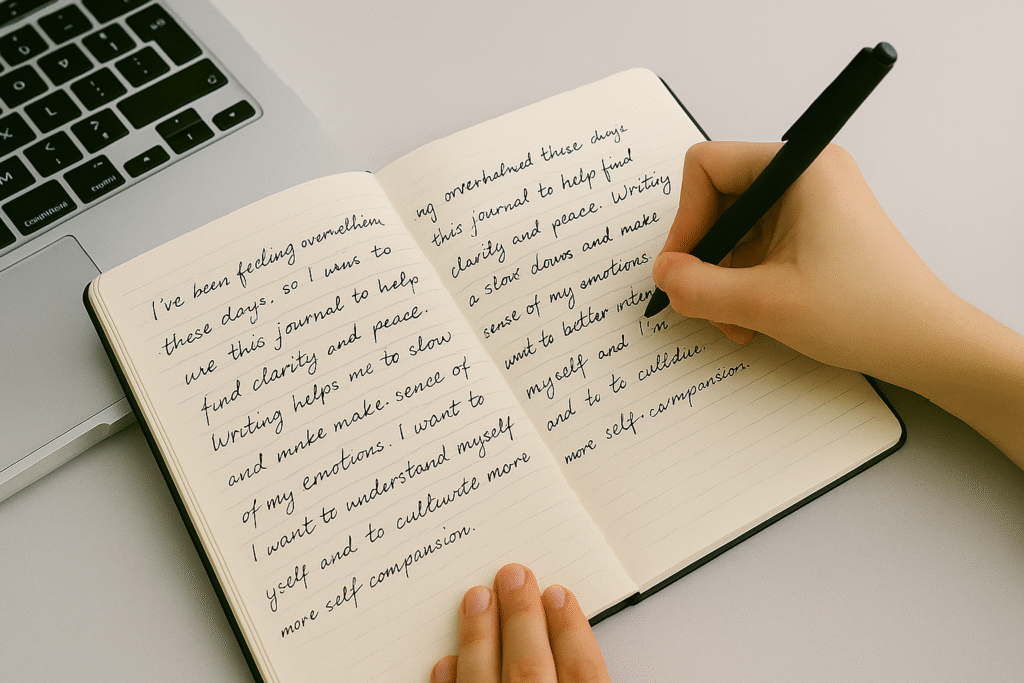 I've been feeling overwelhem
these days. so I wans to
ure this journal to help
find clarity and peace.
Writing helps me to slow
and mnke make. sence of
of my emotions. I want to
I want to understand myself
yself and to cultuwte more
more self compansion.
ng overhalned these
this journal to help find
clarity and peace. Writing
a slow dows and make
sense of my emotions.
to better inten
myself and I'm
and to to
more self. campansion.